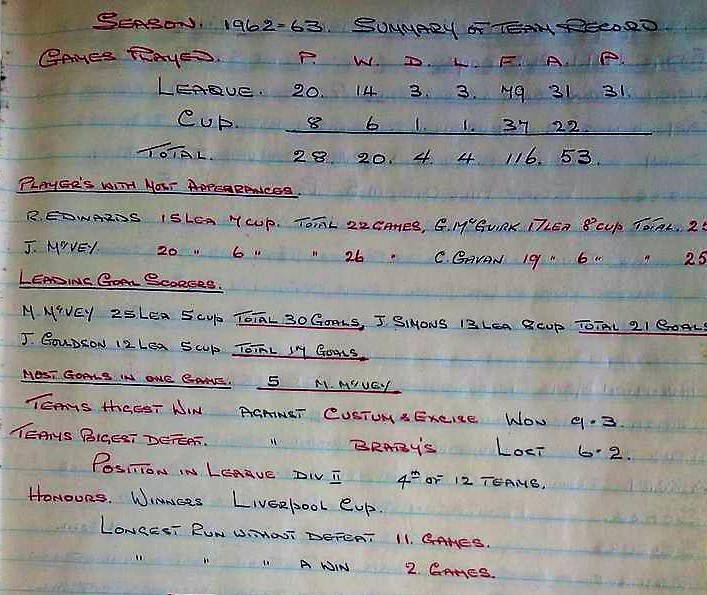 SEASON. 1962-63. SUMMARY OF TEAM RECORD
GAMES PLAYED. P. W. D. L. F. A. P.
LEAGUE. 20. 14 3. 3. 79 31 31.
CUP. 8 6 1. 1. 37 22
TOTAL. 28 20. 4 4 116. 53.
PLAYER'S WITH MOST APPEARANCES.
R. EDWARDS 15 LEA 7 CUP. TOTAL 22 GAMES, G. McGUIRK 17 LEA 8 CUP TOTAL. 25
J. McVEY 20 " 6 " " 26 " C. GAVAN 19 " 6 " " 25
LEADING GOAL SCORERS.
M. McVEY 25 LEA 5 CUP TOTAL 30 GOALS, J. SIMONS 13 LEA 8 CUP TOTAL 21 GOALS
J. GOULDSON 12 LEA 5 CUP TOTAL 17 GOALS.
MOST GOALS IN ONE GAME. 5 M. McVEY.
TEAMS HIGEST WIN AGAINST CUSTUM & EXCISE WON 9-3.
TEAMS BIGEST DEFEAT. " BRABY'S LOST 6-2.
POSITION IN LEAGUE DIV II 4TH OF 12 TEAMS.
HONOURS. WINNERS LIVERPOOL CUP.
LONGEST RUN WITHOUT DEFEAT 11. GAMES.
" " " A WIN 2 GAMES.